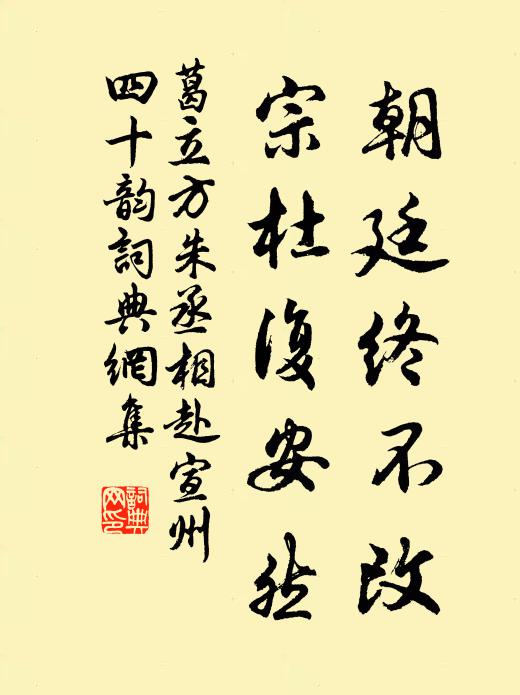 朝廷终不改
宗杜復安然
葛立方朱丞相赴宣州
四十韵詞典網集
詞典網印